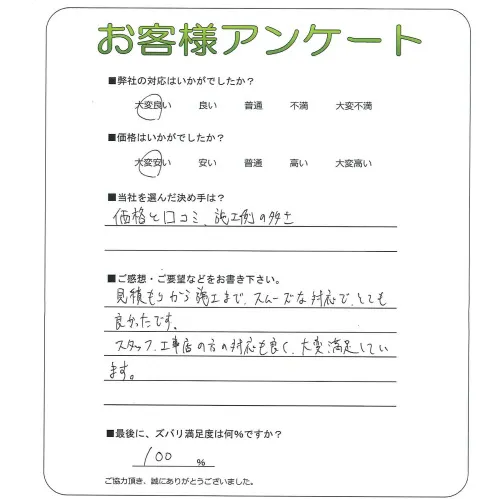 お客様アンケート
■弊社の対応はいかがでしたか？
大変良い 良い 普通 不満 大変不満
■価格はいかがでしたか？
大変安い 安い 普通 高い 大変高い
■当社を選んだ決め手は？
価格と口コミ、施工例の多さ
■ご感想・ご要望などをお書き下さい。
見積もりから施工まで、スムーズな対応で、とても
良かったです。
スタッフ、工事店の方の対応も良く、大変満足してい
ます。
■最後に、ズバリ満足度は何%ですか？
100 %
ご協力頂き、誠にありがとうございました。